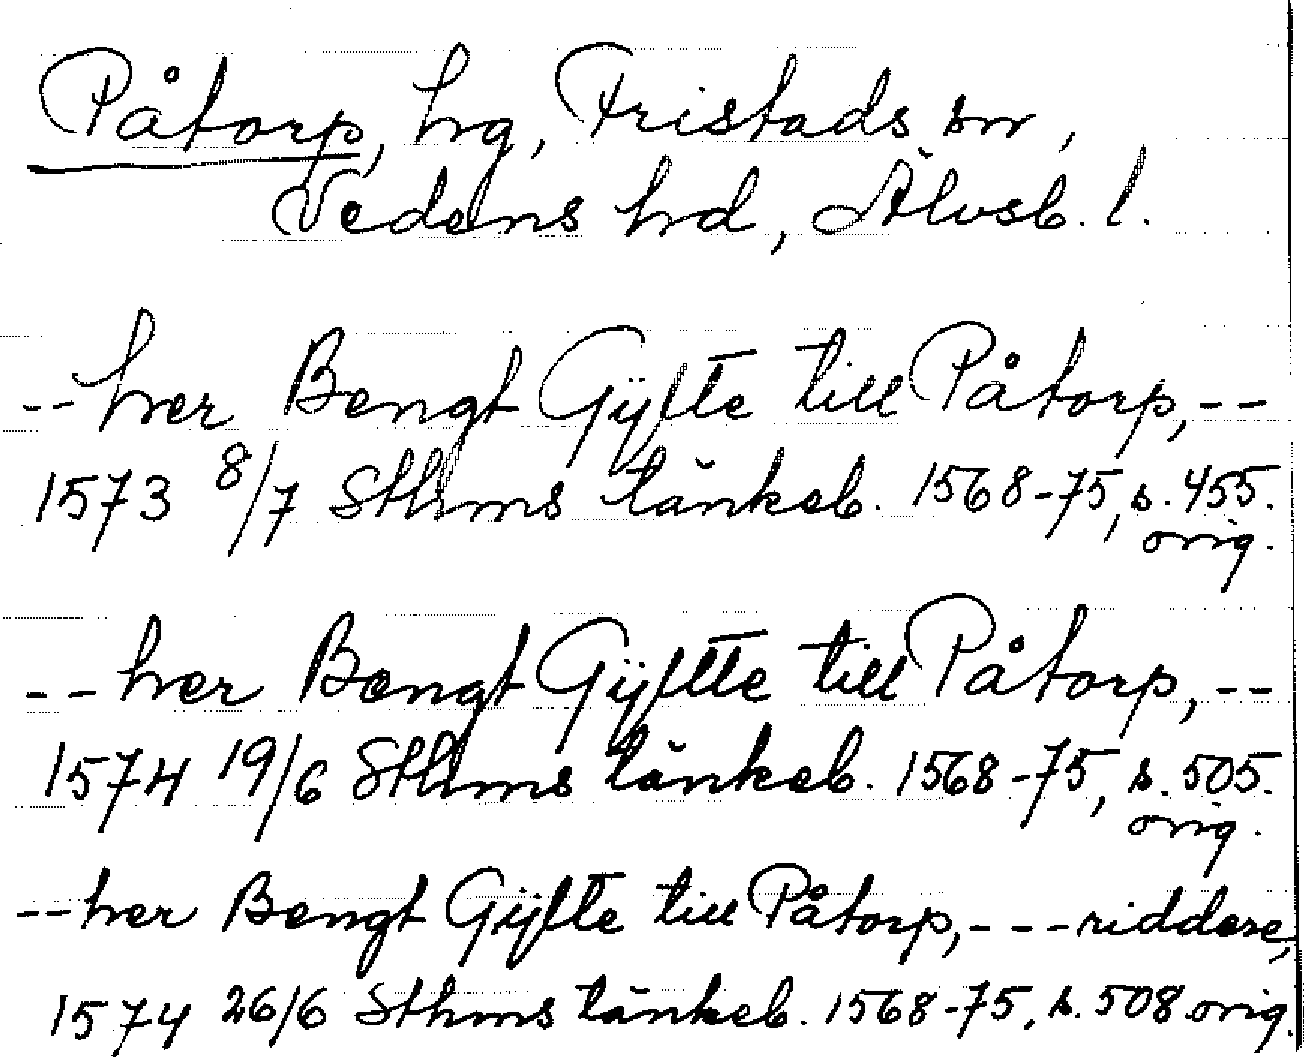 Påtorp, hg, Fristads sn,
Vedens hd, Älvsb. l.
--her Bengt Gÿlte till Påtorp,--
1573 8/7 Sthms tänkeb. 1568-75, s. 455.
orig.
--her Bengt Gÿltte till Påtorp,--
1574 19/6 Sthms tänkeb. 1568-75, s. 505.
orig.
--her Bengt Gÿlte till Påtorp,---riddere,
1574 26/6 Sthms tänkeb. 1568-75, s. 508 orig.